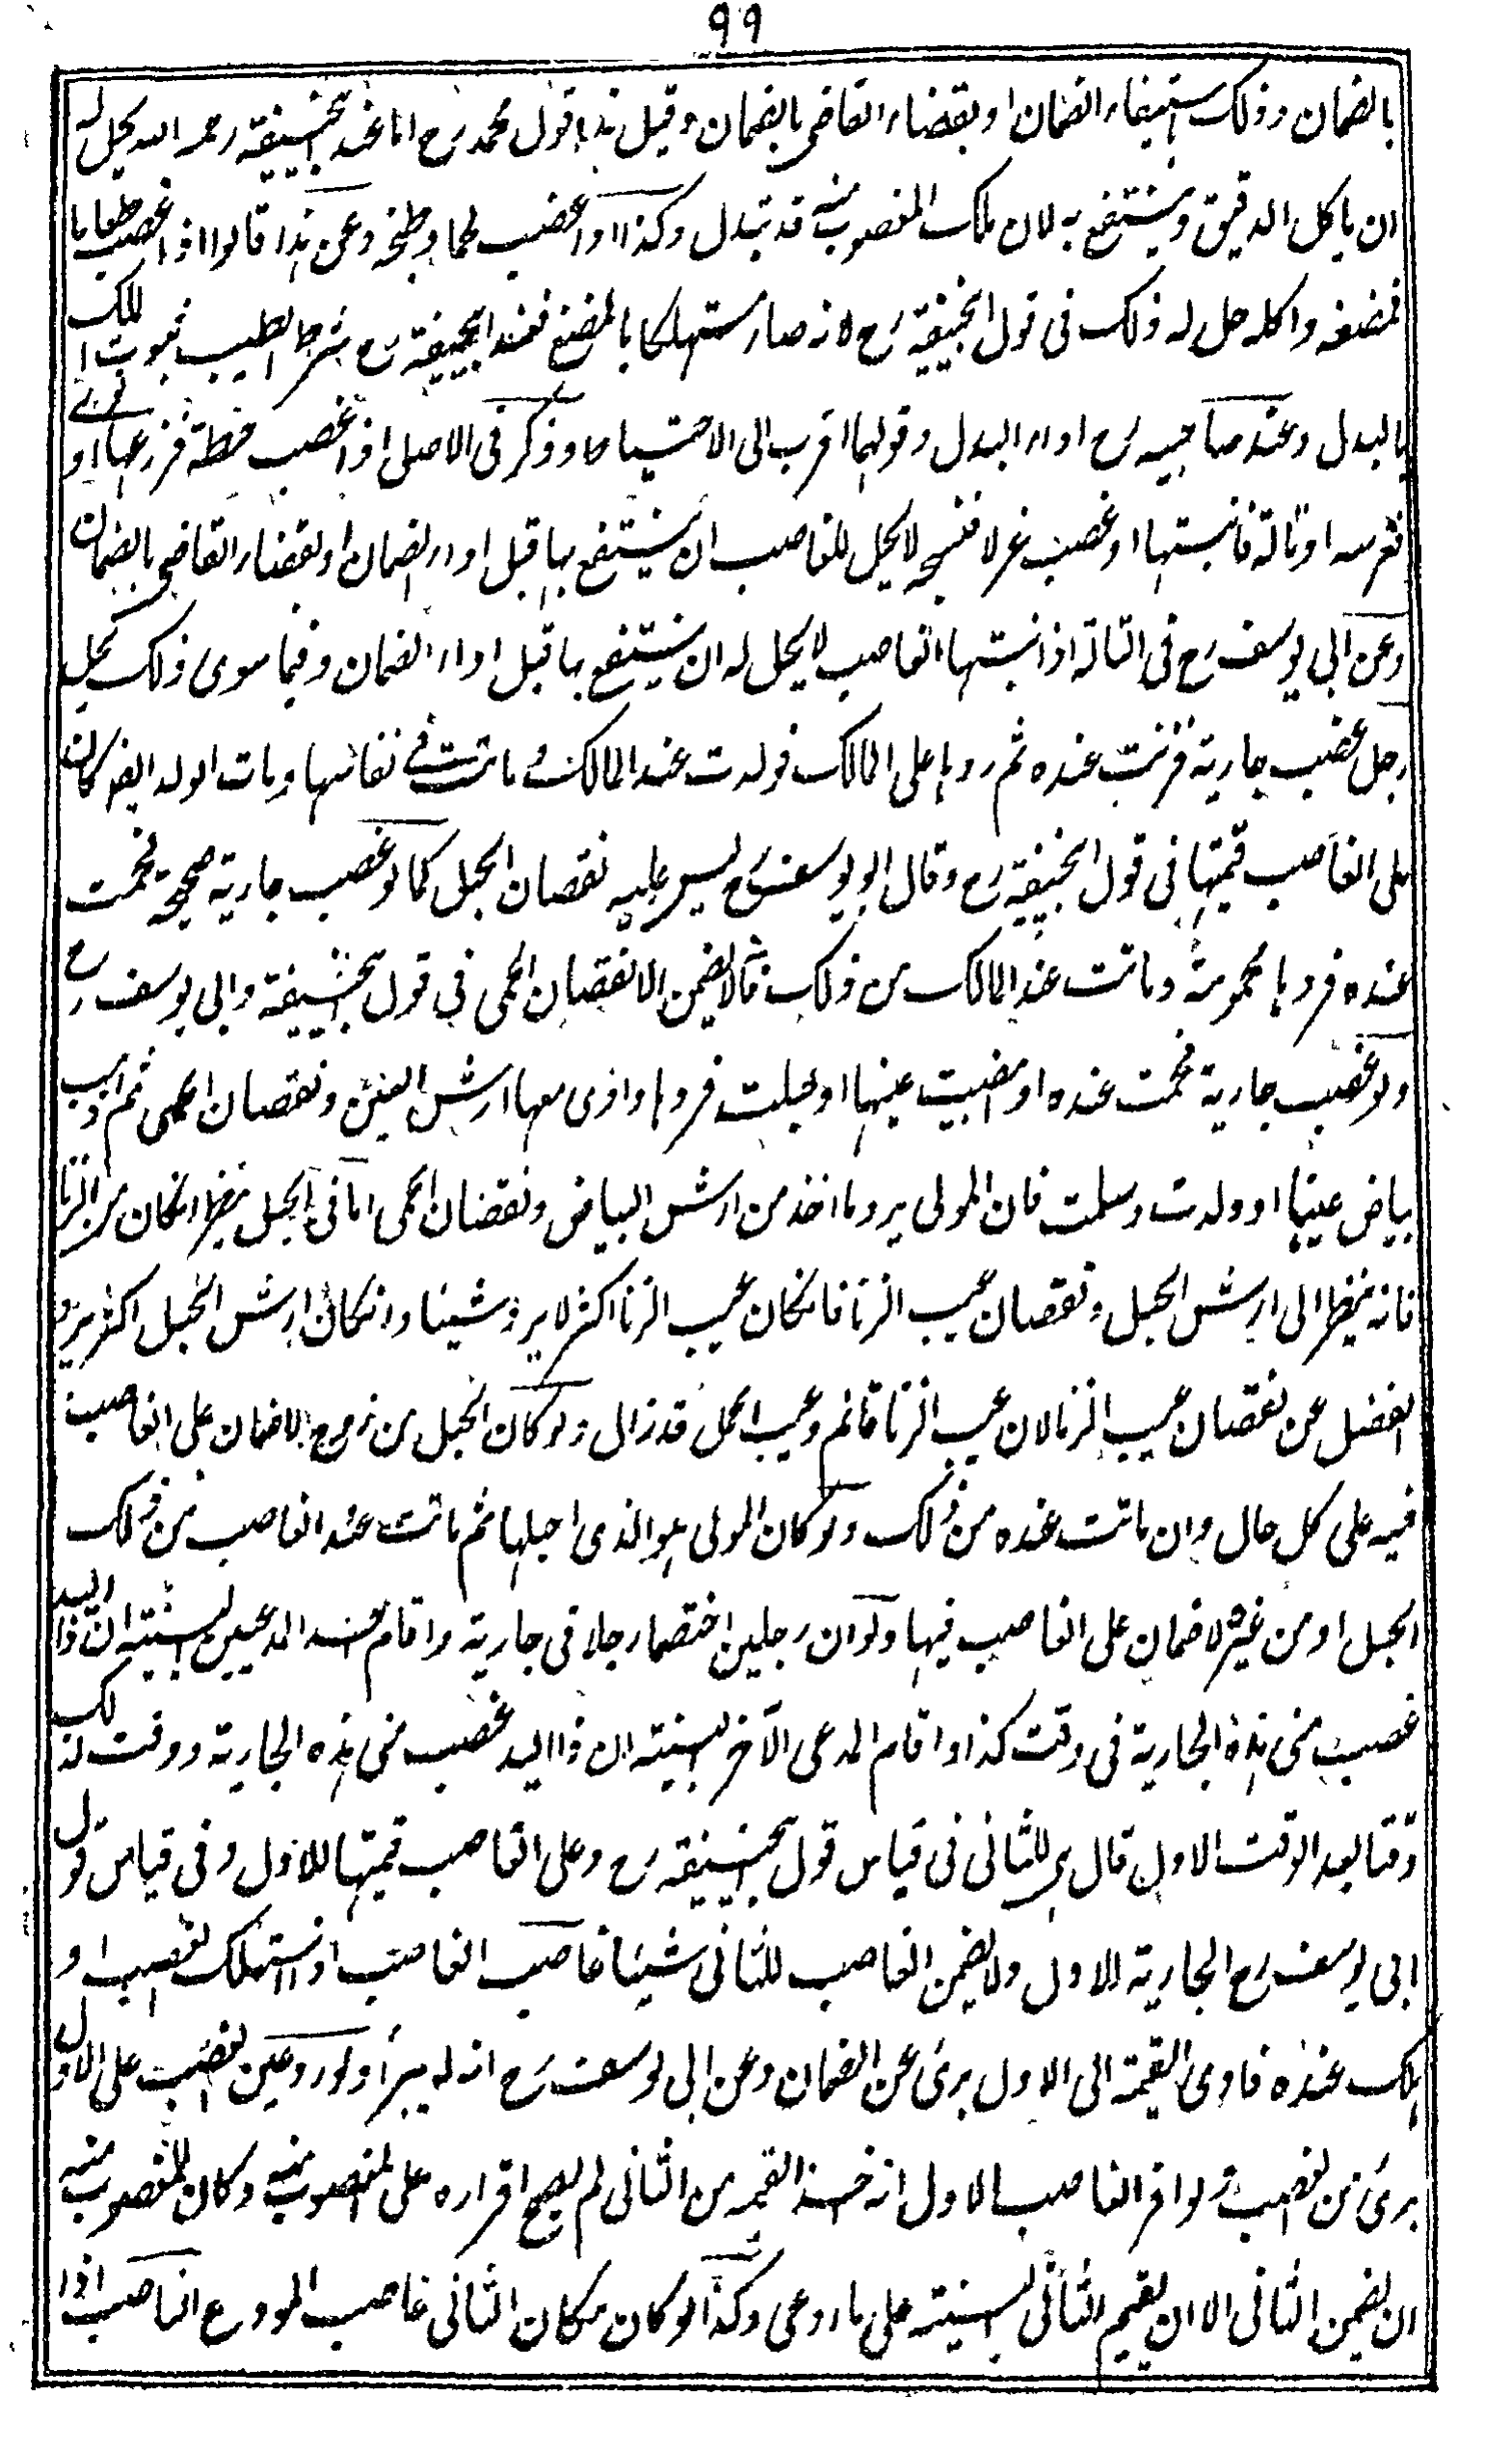 ٩٩
بالضمان وذلك باستيفاء الضمان او بقضاء القاضى بالضمان وقيل هذا قول محمد رح اما عند ابيحنيفة رحمه الله يحل له
ان ياكل الدقيق وينتفع به لان ملك المغصوب منه قد تبدل وكذا اذا غصب لحما وطبخه وعن هذا قالوا اذا غصب طعاما
فمضغه واكله حل له ذلك فى قول ابيحنيفة رح لانه صار مستهلكا بالمضغ فعند ابيحنيفة رح شرط الطيب ثبوت الملك
بالبدل وعند صاحبيه رح اداء البدل وقولهما اقرب الى الاحتياط وذكر فى الاصل اذا غصب حنطة فزرعها او نوى
فغرسه او تالة فانبتها او غصب غزلا فنسجه لا يحل للغاصب ان ينتفع بها قبل اداء الضمان او بقضاء القاضى بالضمان
وعن ابى يوسف رح فى التالة اذا انبتها الغاصب لا يحل له ان ينتفع بها قبل اداء الضمان وفيما سوى ذلك يحل
رجل غصب جارية فزنت عنده ثم ردها على المالك فولدت عند المالك وماتت فى نفاسها ومات الولد ايضا كان
على الغاصب قيمتها فى قول ابيحنيفة رح وقال ابو يوسف رح ليس عليه نقصان الحبل كما لو غصب جارية صحيحة فحمت
عنده فردها محمومة وماتت عند المالك من ذلك فانه لا يضمن الا نقصان الحمى فى قول ابيحنيفة وابى يوسف رح
ولو غصب جارية فحمت عنده او ابيضت عينها او حبلت فردها وادى معها ارش العين ونقصان الحمى ثم ذهب
بياض عينها او ولدت وسلمت فان المولى يرد ما اخذ من ارش البياض ونقصان الحمى اما فى الحبل ينظر انكان من الزنا
فانه ينظر الى ارش الحبل ونقصان عيب الزنا فانكان عيب الزنا اكثر لا يرد شيئا وانكان ارش الحبل اكثر يرد
الفضل عن نقصان عيب الزنا لان عيب الزنا قائم وعيب الحبل قد زال ولو كان الحبل من زوج لا ضمان على الغاصب
فيه على كل حال وان ماتت عنده من ذلك ولو كان المولى هو الذى احبلها ثم ماتت عند الغاصب من ذلك
الحبل او من غيره لا ضمان على الغاصب فيها ولو ان رجلين اختصما رجلا فى جارية واقام احد المدعيين البينة ان ذا اليد
غصب منى هذه الجارية فى وقت كذا واقام المدعى الآخر البينة ان ذا اليد غصب منى هذه الجارية ووقت لذلك
وقتا بعد الوقت الاول قال هى للثانى فى قياس قول ابيحنيفة رح وعلى الغاصب قيمتها للاول وفى قياس قول
ابى يوسف رح الجارية للاول ولا يضمن الغاصب للثانى شيئا غاصب الغاصب اذا استهلك الغصب او
هلك عنده فادى القيمة الى الاول برئ عن الضمان وعن ابى يوسف رح انه لا يبرأ ولو رد عين الغصب على الاول
برئ من الغصب ولو اقر الغاصب الاول انه اخذ القيمة من الثانى لم يصح اقراره على المغصوب منه وكان للمغصوب منه
ان يضمن الثانى الا ان يقيم الثانى البينة على ما ادعى وكذا لو كان مكان الثانى غاصب المودع الغاصب اذا